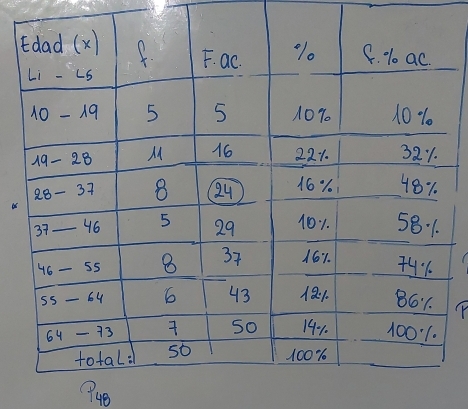 Edad (x) f. F. ac. % f. % ac.
Li - Ls
10 - 19 5 5 10% 10%
19 - 28 11 16 22% 32%
28 - 37 8 24 16% 48%
37 - 46 5 29 10% 58%
46 - 55 8 37 16% 74%
55 - 64 6 43 12% 86%
64 - 73 7 50 14% 100%
total: 50 100%
P48